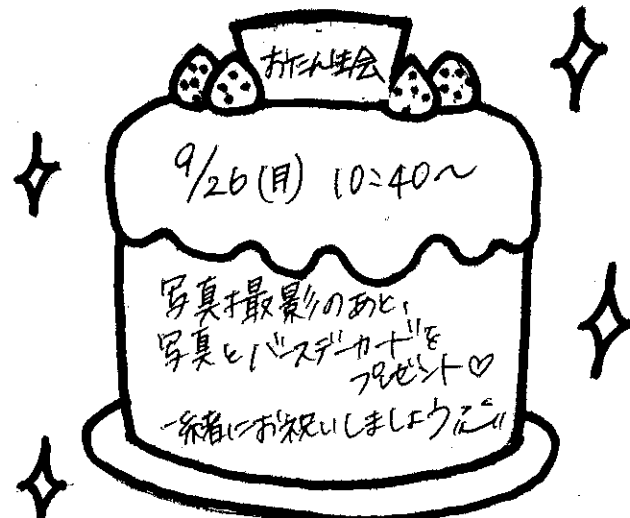 おたん生会
9/26(月) 10:40〜
写真撮影のあと、
写真とバースデーカードを
プレゼント♡
一緒にお祝いしましょう